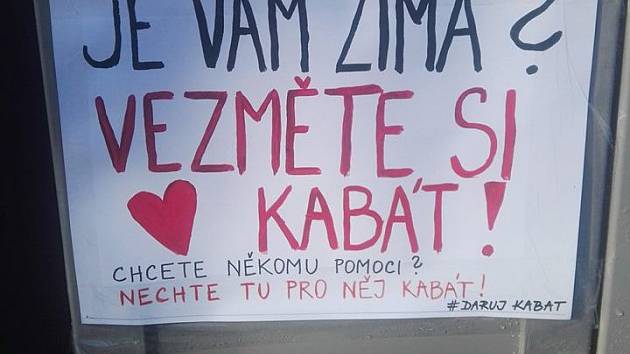 JE VÁM ZIMA?
VEZMĚTE SI
KABÁT!
CHCETE NĚKOMU POMOCI?
NECHTE TU PRO NĚJ KABÁT!
#DARUJ KABAT